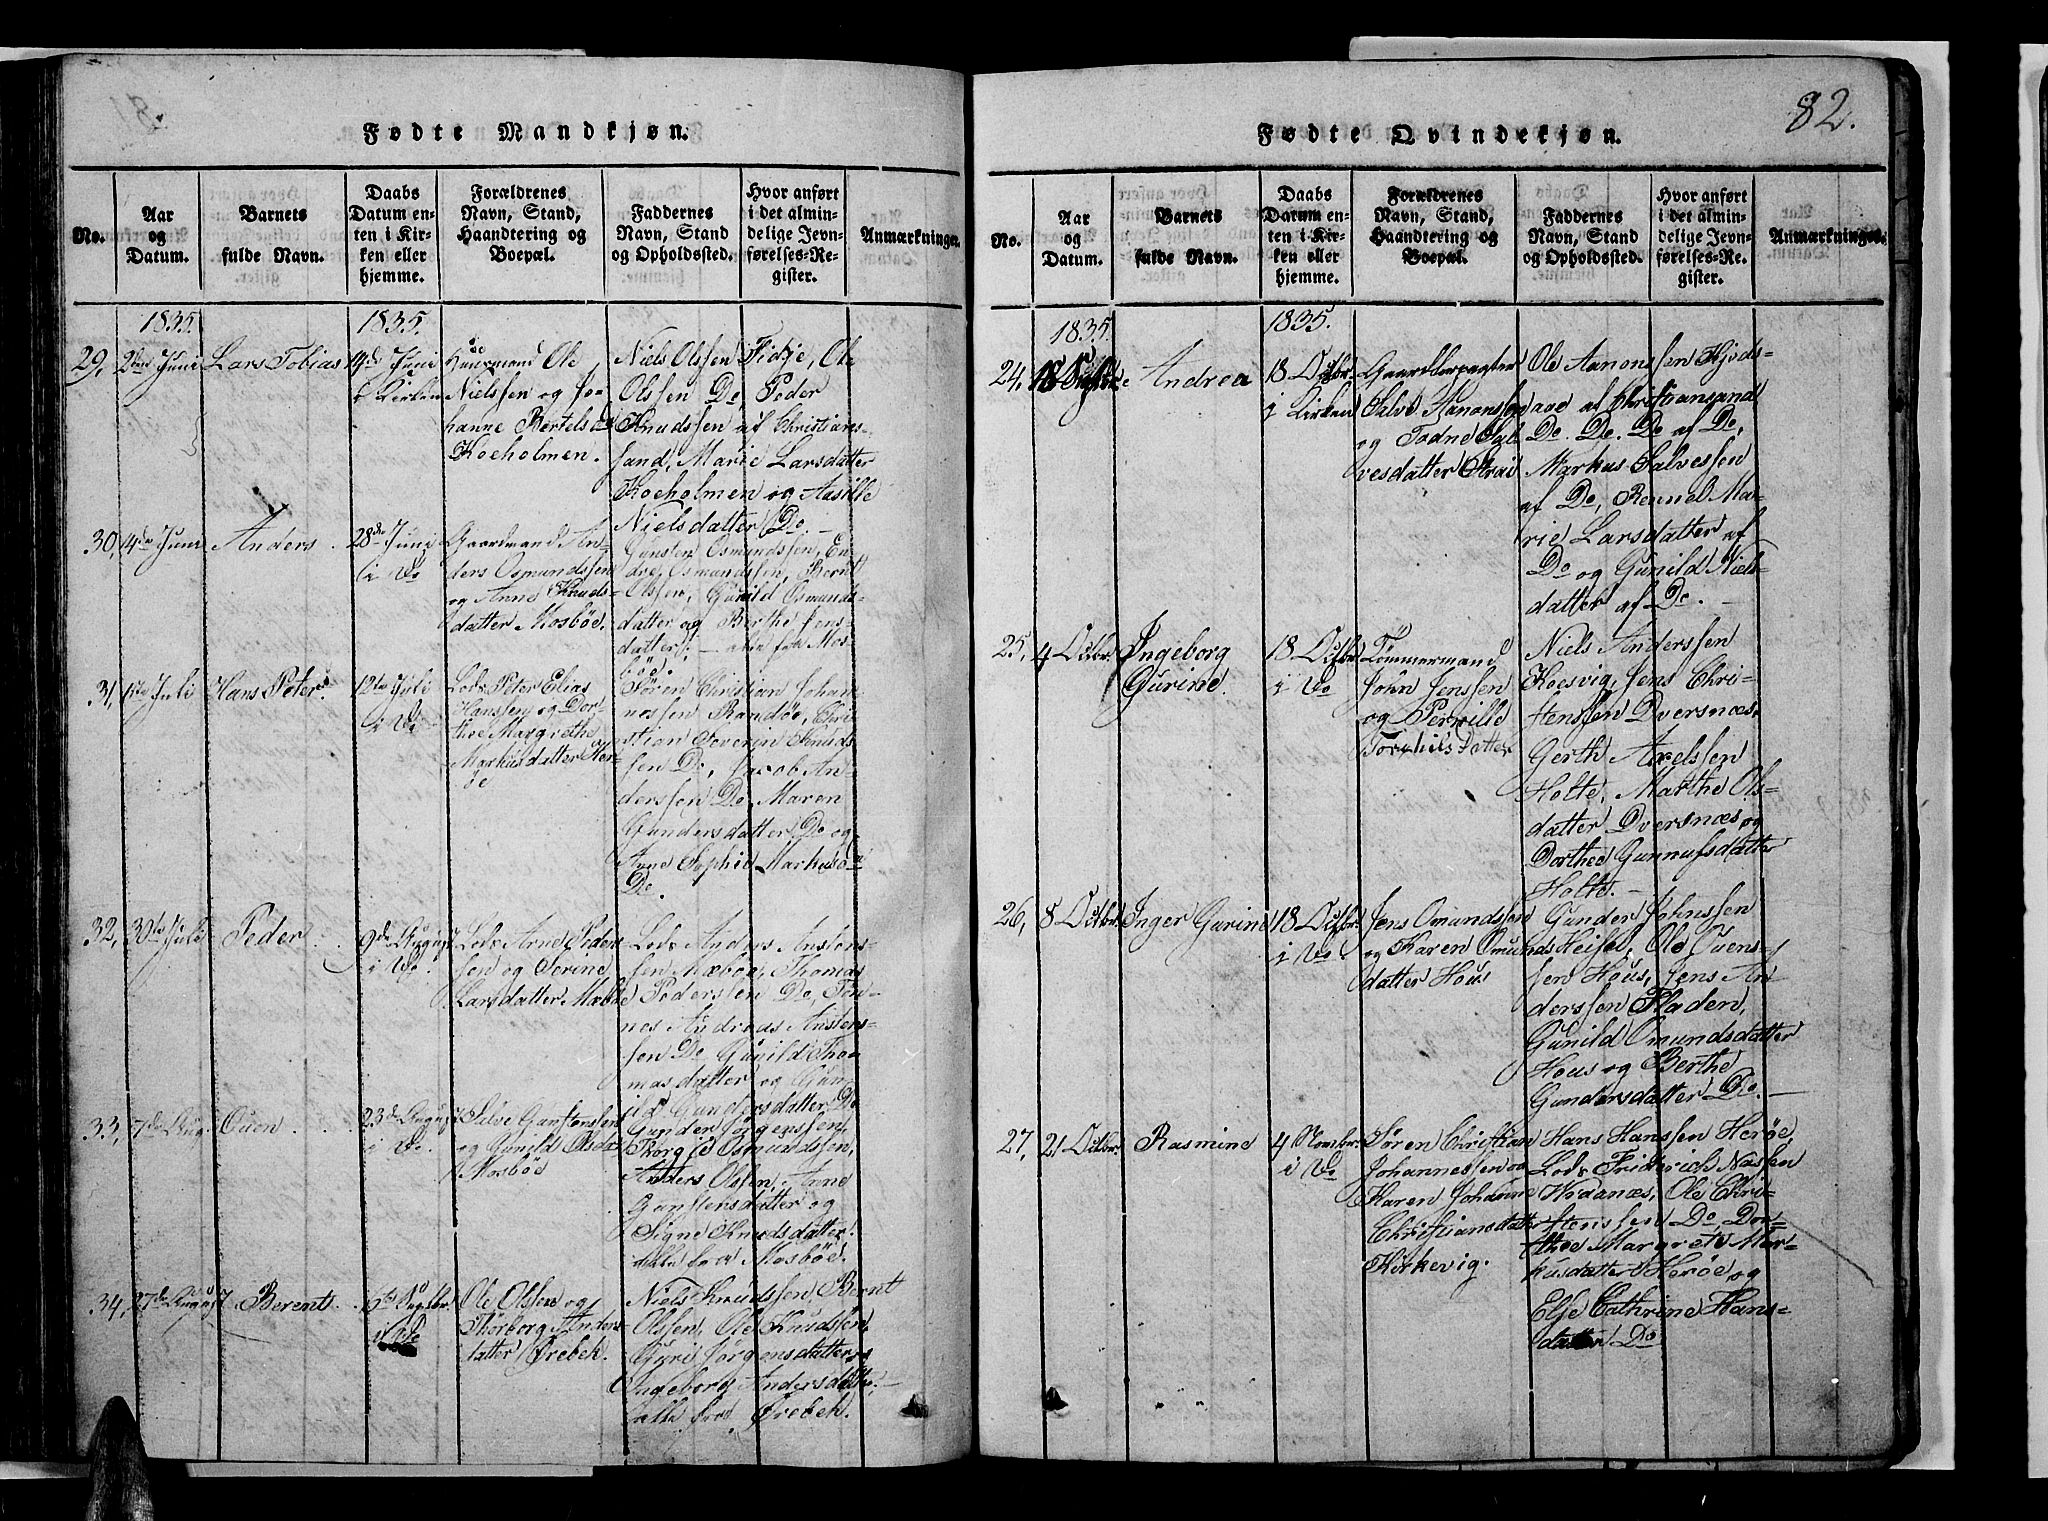 Fødte Mandkjøn.
No.
Aar
og
Datum.
Barnets
fulde Navn.
Daabs
Datum en-
ten i Kir-
ken eller
hjemme.
Forældrenes
Navn, Stand,
Haandtering og
Boepæl.
Faddernes
Navn, Stand
og Opholdssted.
Hvor anført
i det almin-
delige Jevn-
førelses-Re-
gister.
Anmærkninger.
1835.
1835.
29,
2den Juni
Lars Tobias
14de Juni
i Kirken
Huusmand Ole
Nielssen og Jo-
hanne Bertelsd.
Koeholmen.
Niels Olssen Fidje, Ole
Olssen Do, Peder
Knudssen af Christians-
sand, Marie Larsdatter
Koeholmen og Aasille
Nielsdatter Do.
30,
14de Juni
Anders
28de Juni
i Do
Gaardmand An-
ders Osmundssen
og Anne Knuds-
datter Mosböe.
Gunsten Osmundssen, En-
dre Osmundssen, Bernt
Olssen, Gunild Osmunds-
datter og Berthe Jens-
datter, alle fra Mos-
böe.
31,
1ste Juli
Hans Peter
12te Juli
i Do
Lods Peter Elias
Hanssen og Dor-
thee Margrethe
Markusdatter Her-
øe
Søren Christian Johan-
nessen Randöe, Chri-
stian Severin Knuds
sen Do, Jacob An-
derssen Do, Maren
Gundersdatter Do og
Anne Sophie Markusd.
Do.
32,
30te Juli
Peder
9de August
i Do.
Lods Arne Peders
sen og Serine
Larsdatter Mæböe
Lods Anders Anstens-
sen Mæböe, Thomas
Pederssen Do, Tön-
nes Andreas Anstens-
sen Do, Gunild Tho-
masdatter og Gun-
ild Gundersdatter Do
33,
7de Aug.
Ouen
23de August
i Do.
Salve Gunstenssen
og Gunild Olsdat.
Mosböe
Gunder Jörgenssen,
Törgid Osmundssen,
Anders Olssen, Anne
Gunstensdatter og
Signe Knudsdatter,
alle fra Mosböe.
34,
27de August
Berent
6te Septbr.
i Do
Ole Olssen og
Thorborg Anders-
datter Ørebek.
Niels Knudssen, Bernt
Olssen, Ole Knudssen,
Guri Jörgensdatter,
Ingeborg Andersdatter,
alle fra Ørebek.
82.
Fødte Qvindekjøn.
No.
Aar
og
Datum.
Barnets
fulde Navn.
Daabs
Datum en-
ten i Kir-
ken eller
hjemme.
Forældrenes
Navn, Stand,
Haandtering og
Boepæl.
Faddernes
Navn, Stand
og Opholdssted.
Hvor anført
i det almin-
delige Jevn-
førelses-Re-
gister.
Anmærkninger.
1835.
1835.
24,
Andrea
18 Octbr.
i Kirken
Gaardforpagter
Salve Aanonssen
og Todne Sal-
vesdatter Straie
Ole Aanonssen Hjeds-
aae af Christiansand
Do. Do. Do af Do,
Markus Salvessen
af Do, Rennel Ma-
rie Larsdatter af
Do og Gunild Niels-
datter af Do.
25,
4 Octbr.
Ingeborg
Gurine.
18 Octbr.
i Do
Tömmermand
John Jenssen
og Pernille
Torkilsdatter
Niels Anderssen
Koesvig, Jens Chri-
stenssen Dversnæs,
Gerth Axelssen
Holte, Marthe Ols-
datter Dversnæs og
Dorthee Gunnufsdatter
Holte.
26,
8 Octbr.
Inger Gurine
18 Octbr.
i Do
Jens Omundssen
og Karen Omunds
datter Hous
Gunder Johnssen
Heisel, Ole Ouens-
sen Hous, Jens An-
derssen Fladen,
Gunild Omundsdatter
Hous og Berthe
Gundersdatter Do.
27,
21 Octbr.
Rasmine
4 Novbr.
i Do
Søren Christian
Johannessen og
Karen Johanne
Christiansdatter
Kirkevig.
Hans Hanssen Herøe,
Lods Friderich Nassen
Hrdanæs, Ole Chri-
stenssen Do, Dor-
thee Margrete Mar-
kusdatter Herøe og
Else Cathrine Hans-
datter Do